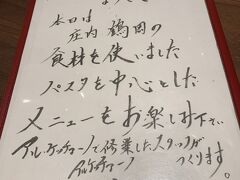 本日は
庄内 鶴岡の
食材を使いました
パスタを中心とした
メニューをお楽しみ下さい
アル・ケッチァーノで修業したスタッフが
つくります。